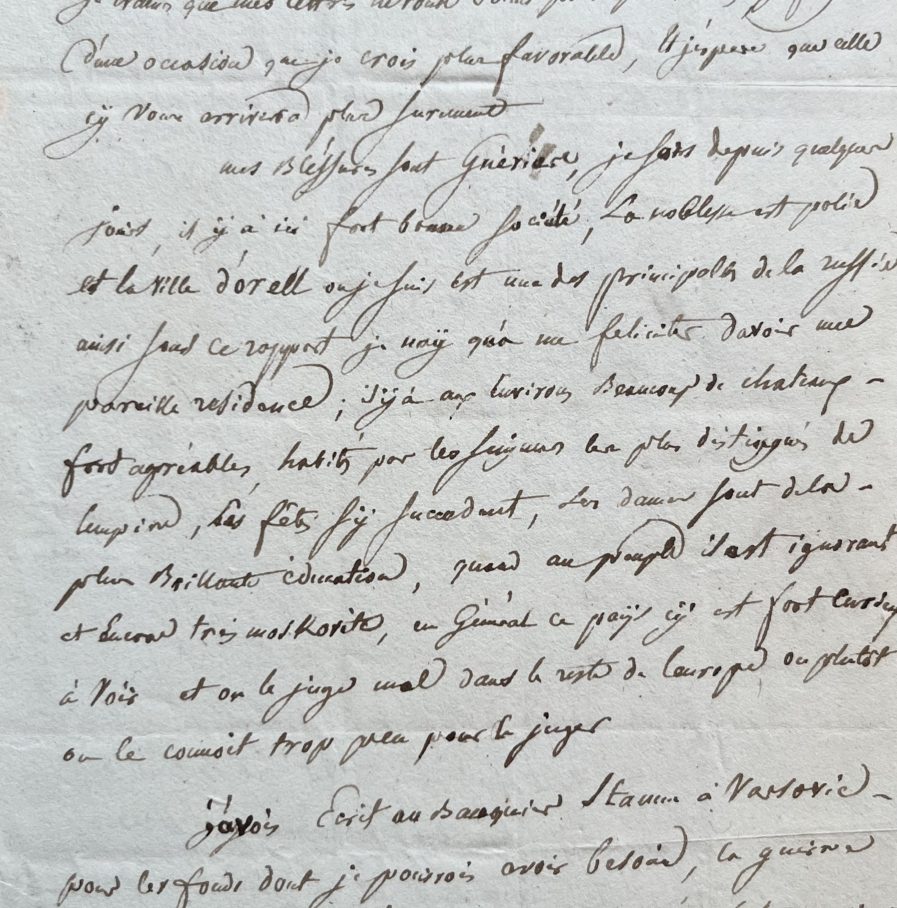 je crains que mes lettres ne vous
d'une occasion que je crois plus favorable, Et j'espere que celle
cÿ Vous arrivera plus surement
mes Bléssures sont Guéries, je sors depuis quelques
jours, il ÿ à ici fort bonne société, La noblesse est polie
et la Ville d'orell ou je suis est une des principales de la russie
ainsi sous ce rapport je naÿ qu'à me feliciter davoir une
pareille residence; il ÿ à aux Environs Beaucoup de chateaux -
fort agréables, habités par les seigneurs les plus distingués de
lempire, Les fêtes s'ÿ succedent, Les dames sont dela -
plus Brillante éducation, quand au peuple il est ignorant
et Encore très moskovite, en Général ce païs cÿ est fort curieux
à Voir et on le juge mal dans le reste de leurope ou plutôt
on le connoit trop peu pour le juger
j'avois Ecrit au Banquier Stamm à Varsovie -
pour les fonds dont je pourrois avoir besoin, la guerre